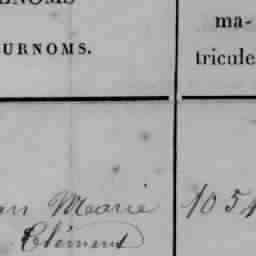 ENOMS
URNOMS.
ma-
tricule
an Marie
Clément
1054